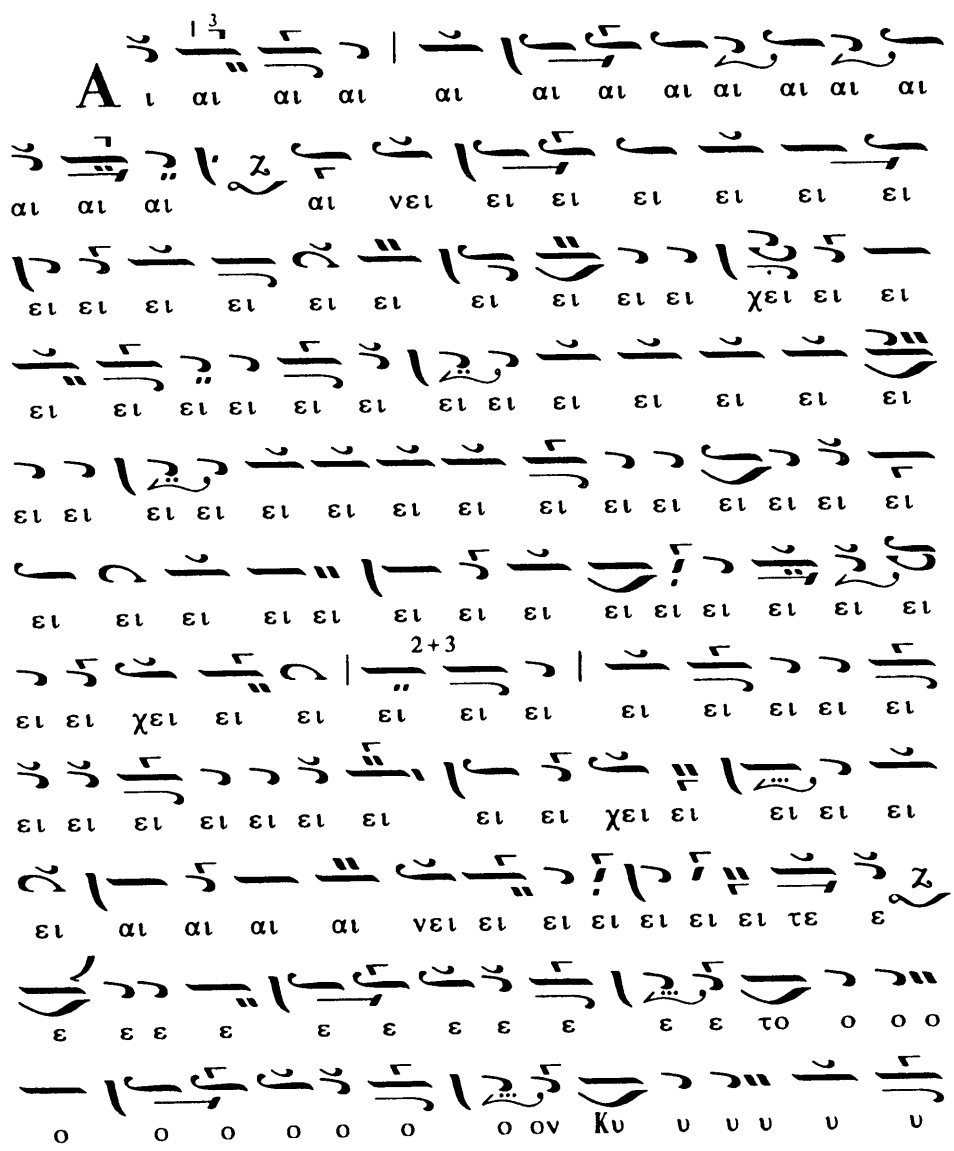 1 3
Α ι αι αι αι αι αι αι αι αι αι αι αι
αι αι αι αι νει ει ει ει ει ει ει
ει ει ει ει ει ει ει ει ει ει χει ει ει
ει ει ει ει ει ει ει ει ει ει ει ει ει
ει ει ει ει ει ει ει ει ει ει ει ει ει ει ει
ει ει ει ει ει ει ει ει ει ει ει ει ει ει
2+3
ει ει χει ει ει ει ει ει ει ει ει ει ει
ει ει ει ει ει ει ει ει ει χει ει ει ει ει
ει αι αι αι αι νει ει ει ει ει ει ει τε ε
ε ε ε ε ε ε ε ε ε ε ε το ο ο ο
ο ο ο ο ο ο ο ον Κυ υ υ υ υ υ